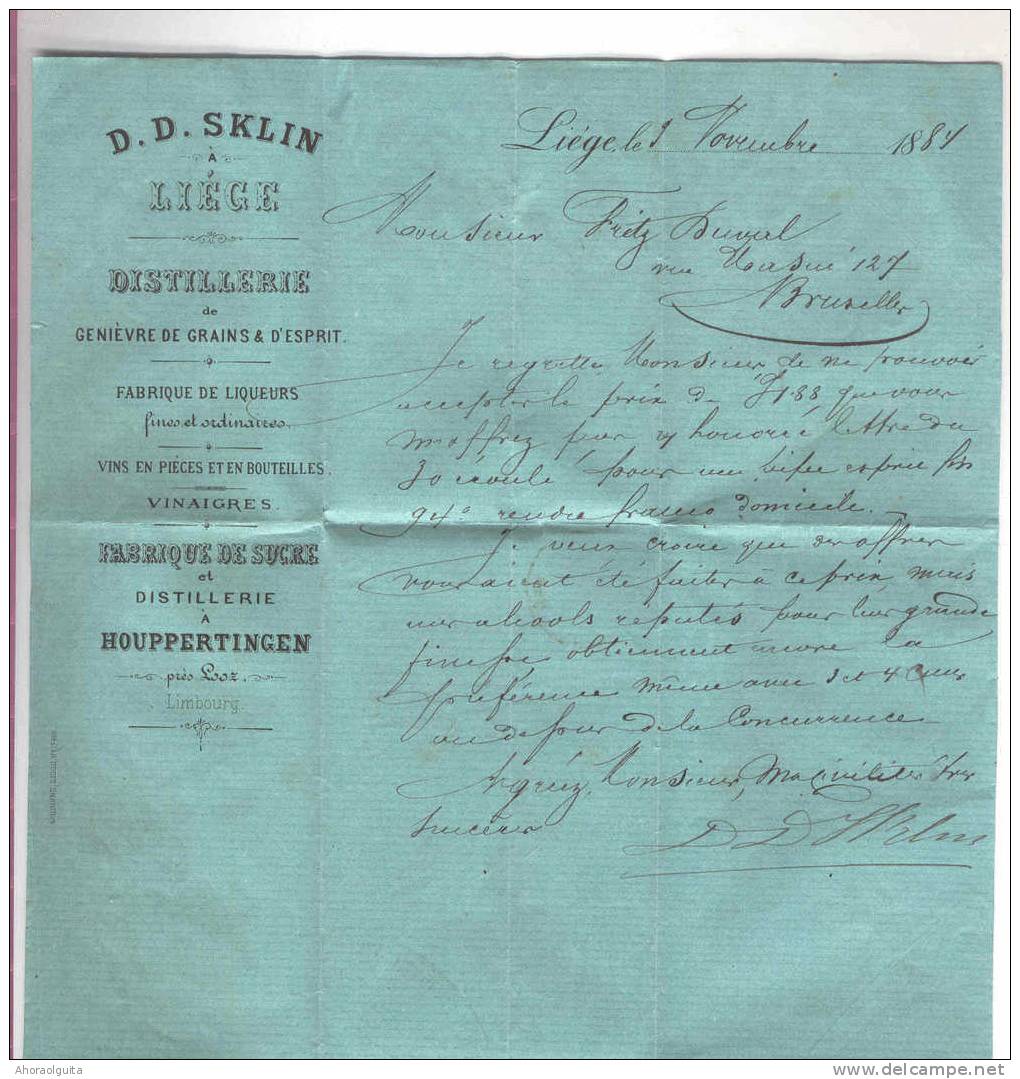 D. D. SKLIN
À
LIÉGE
DISTILLERIE
de
GENIÈVRE DE GRAINS & D'ESPRIT.
FABRIQUE DE LIQUEURS
fines et ordinaires.
VINS EN PIÈCES ET EN BOUTEILLES.
VINAIGRES.
FABRIQUE DE SUCRE
et
DISTILLERIE
À
HOUPPERTINGEN
près Looz.
Limbourg
Liége, le Novembre 1884
Monsieur Fritz Duval
rue 127
Bruxelles
Je regrette Monsieur de ne pouvoir
accepter le prix de 88, que vous
m'offrez par honorée lettre du
30 écoulé pour un esprit fin
94° rendre franco domicile.
Je veux croire que des offres
vous aient été faites à ce prix, mais
nos alcools réputés pour leur grande
finesse, obtiennent encore la
préférence même avec 3 et 4
au dessus de la Concurrence
Agréez, Monsieur, Mes civilités très
sincères
D D Sklin
Ahoraolguita
www.delcampe.net